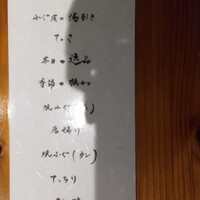 ふぐ皮の湯引き
てっさ
本日の逸品
季節の
焼ふぐ(
唐揚げ
焼ふぐ(タレ)
てっちり